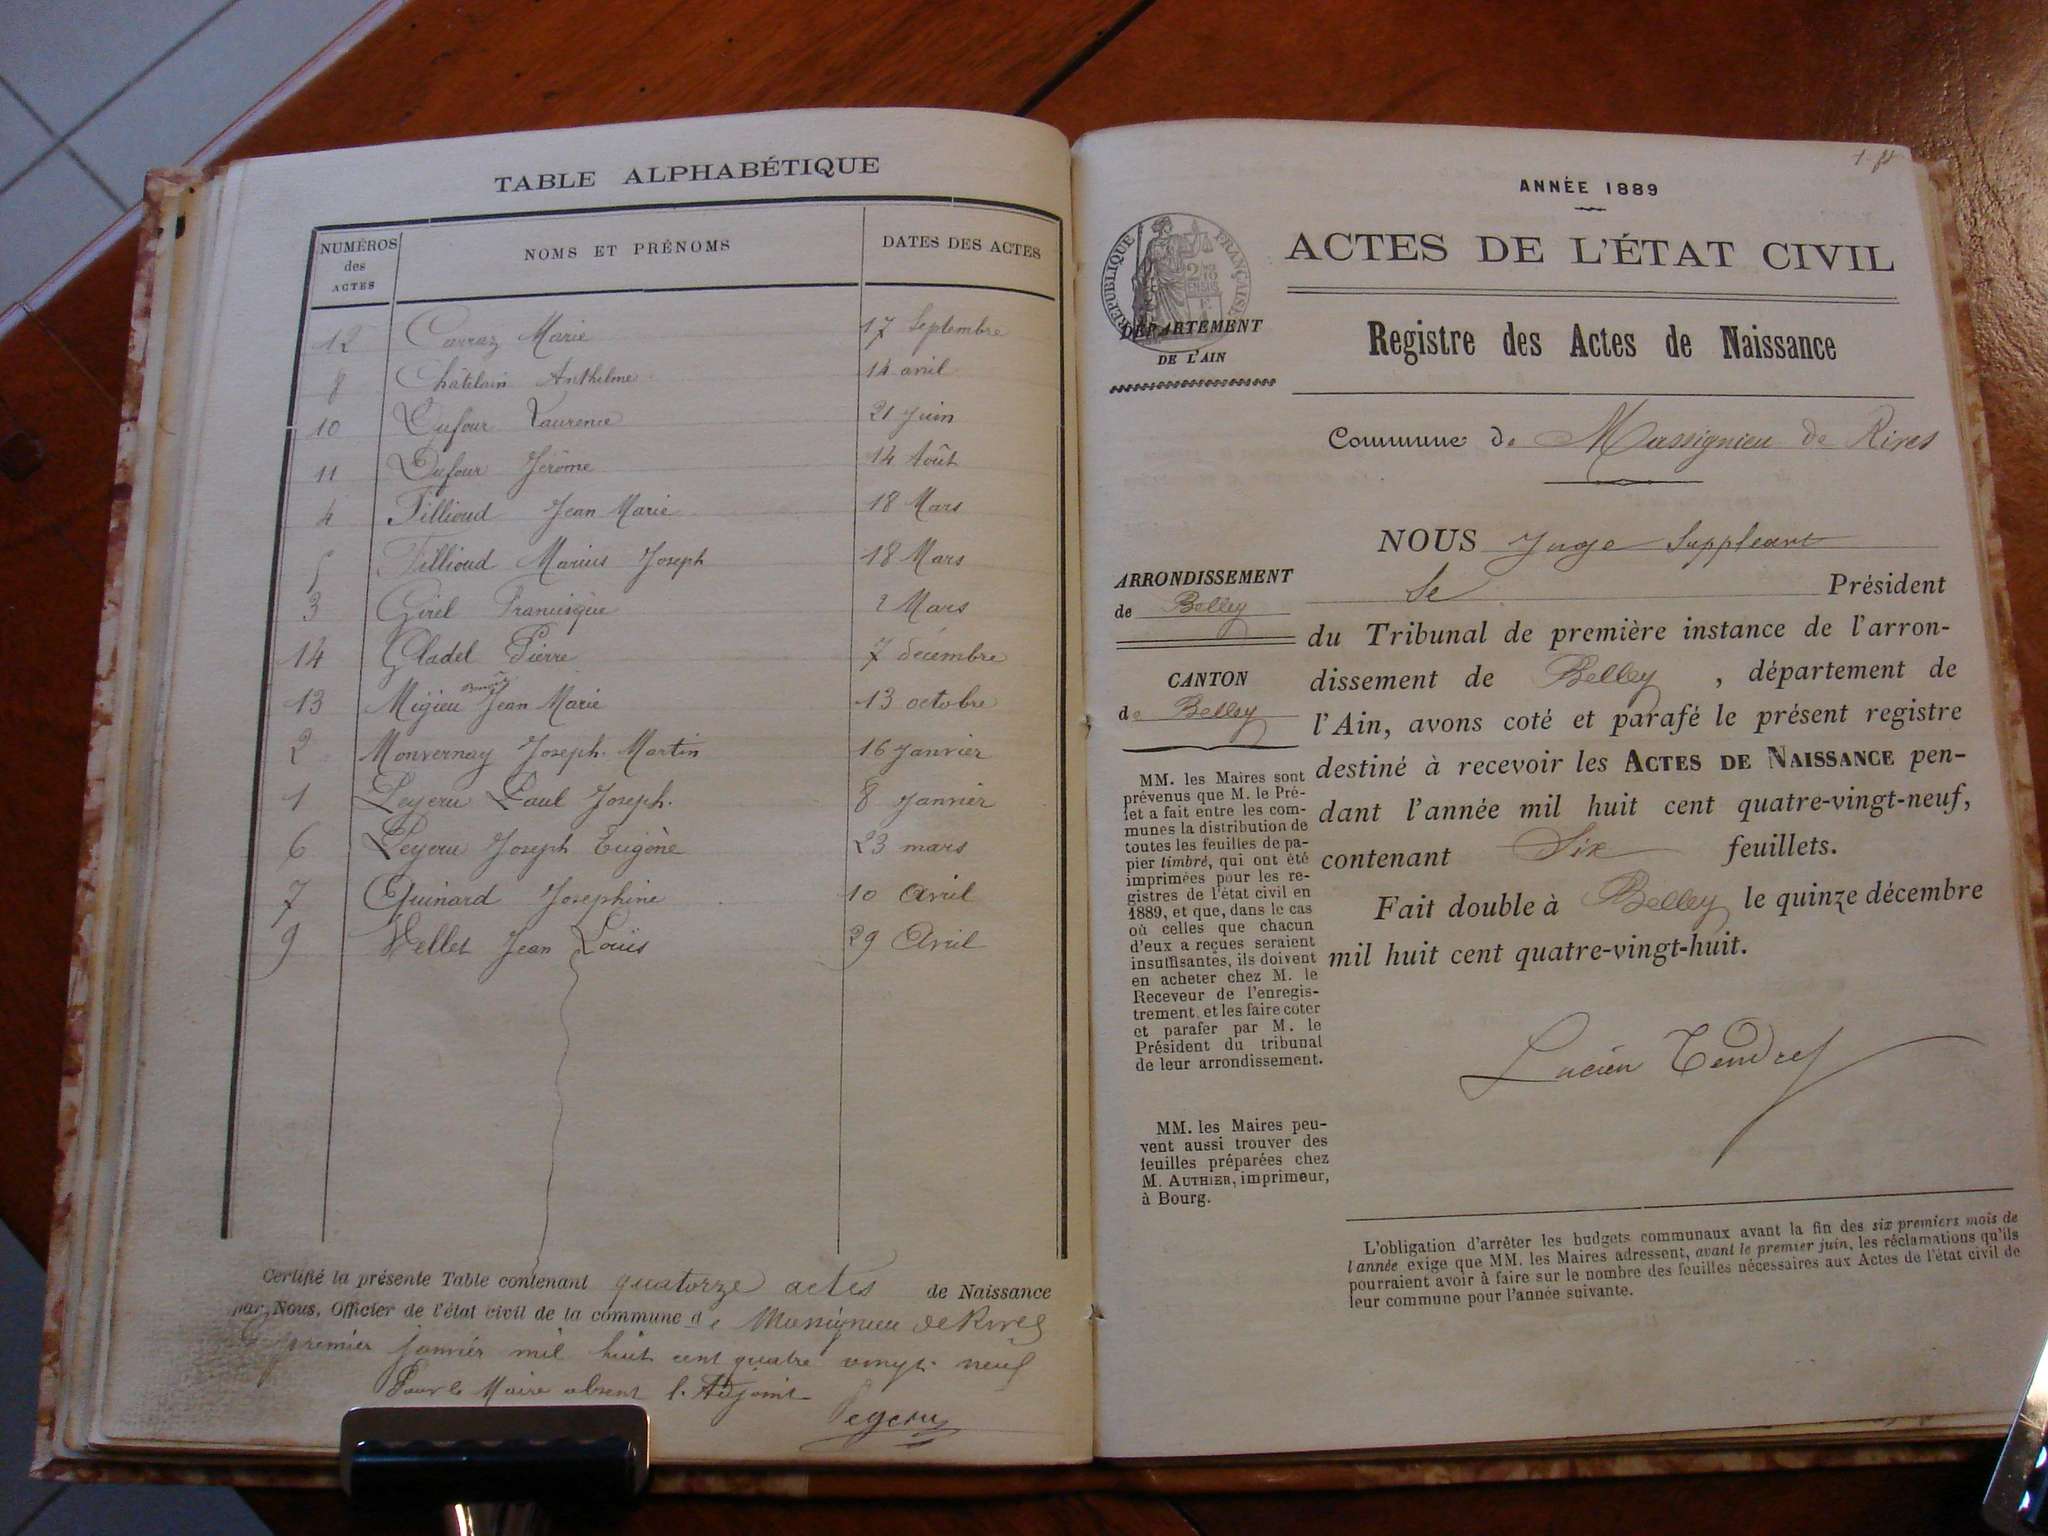 TABLE ALPHABÉTIQUE
NUMÉROS des ACTES
NOMS ET PRÉNOMS
DATES DES ACTES
12 Carraz Marie 17 Septembre
8 Châtelain Anthelme 14 avril
10 Dufour Laurence 21 Juin
11 Dufour Jérôme 14 Août
4 Fillioud Jean Marie 18 Mars
5 Fillioud Marius Joseph 18 Mars
3 Girel Francisque 2 Mars
14 Gladel Pierre 7 décembre
13 Migieu Jean Marie 13 octobre
2 Monvernay Joseph Martin 16 Janvier
1 Peyeru Paul Joseph. 8 Janvier
6 Peyeru Joseph Eugène 23 mars
7 Quinard Josephine 10 Avril
9 Vellet Jean Louis 29 Avril
Certifié la présente Table contenant quatorze actes de Naissance
par Nous, Officier de l'état civil de la commune de Massignieu de Rives
premier janvier mil huit cent quatre vingt neuf
Pour le Maire absent l'Adjoint
Peyeru
ANNÉE 1889
RÉPUBLIQUE FRANÇAISE
ACTES DE L'ÉTAT CIVIL
DÉPARTEMENT
DE L'AIN
Registre des Actes de Naissance
Commune de Massignieu de Rives
NOUS Juge Suppléant
ARRONDISSEMENT
de Belley
CANTON
de Belley
le Président
du Tribunal de première instance de l'arron-
dissement de Belley, département de
l'Ain, avons coté et parafé le présent registre
destiné à recevoir les ACTES DE NAISSANCE pen-
dant l'année mil huit cent quatre-vingt-neuf,
contenant Six feuillets.
Fait double à Belley le quinze décembre
mil huit cent quatre-vingt-huit.
Lucien Tendret
MM. les Maires sont
prévenus que M. le Pré-
fet a fait entre les com-
munes la distribution de
toutes les feuilles de pa-
pier timbré, qui ont été
imprimées pour les re-
gistres de l'état civil en
1889, et que, dans le cas
où celles que chacun
d'eux a reçues seraient
insuffisantes, ils doivent
en acheter chez M. le
Receveur de l'enregis-
trement, et les faire coter
et parafer par M. le
Président du tribunal
de leur arrondissement.
MM. les Maires peu-
vent aussi trouver des
feuilles préparées chez
M. AUTHIER, imprimeur,
à Bourg.
L'obligation d'arrêter les budgets communaux avant la fin des six premiers mois de
l'année exige que MM. les Maires adressent, avant le premier juin, les réclamations qu'ils
pourraient avoir à faire sur le nombre des feuilles nécessaires aux Actes de l'état civil de
leur commune pour l'année suivante.